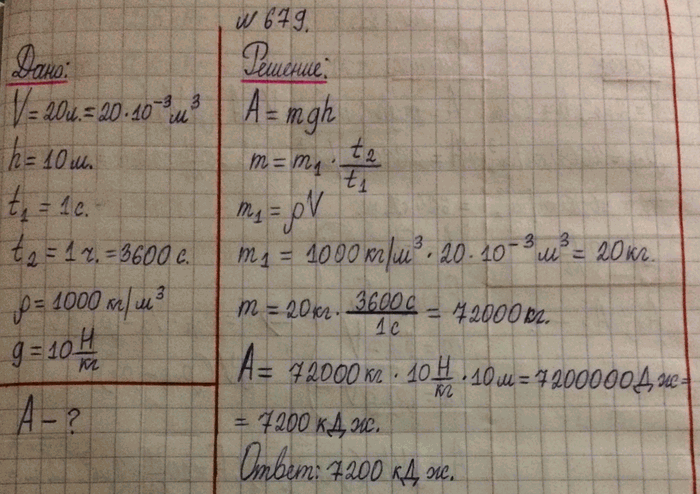 № 679.
Дано:
V = 20л. = 20 · 10⁻³ м³
h = 10 м.
t₁ = 1 с.
t₂ = 1 ч. = 3600 с.
ρ = 1000 кг/м³
g = 10 Н/кг
A – ?
Решение:
A = mgh
m = m₁ · t₂/t₁
m₁ = ρV
m₁ = 1000 кг/м³ · 20 · 10⁻³ м³ = 20 кг.
m = 20 кг · 3600 с/1 с = 72000 кг.
A = 72000 кг · 10 Н/кг · 10 м = 7200000 Дж =
= 7200 кДж.
Ответ: 7200 кДж.